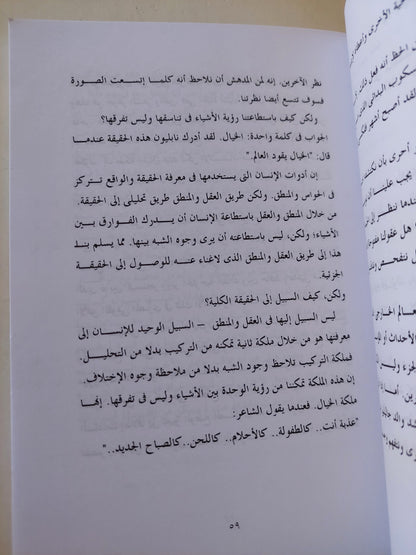 نظر الآخرين. إنه لمن المدهش أن نلاحظ أنه كلما إتسعت الصورة
فسوف تتسع أيضا نظرتنا.
ولكن كيف باستطاعتنا رؤية الأشياء في تناسقها وليس تفرقها؟
الجواب في كلمة واحدة: الخيال. لقد أدرك نابليون هذه الحقيقة عندما
قال: "الخيال يقود العالم."
إن أدوات الإنسان التي يستخدمها في معرفة الحقيقة والواقع تتركز
في الحواس والمنطق. ولكن طريق العقل والمنطق طريق تحليلى إلى الحقيقة.
من خلال المنطق والعقل باستطاعة الإنسان أن يدرك الفوارق بين
الأشياء؛ ولكن، ليس باستطاعته أن يرى وجوه الشبه بينها. مما يسلم بنا
هذا إلى طريق العقل والمنطق الذى لاغناء عنه للوصول إلى الحقيقة
الجزئية.
ولكن، كيف السبيل إلى الحقيقة الكلية؟
ليس السبيل إليها فى العقل والمنطق – السبيل الوحيد للإنسان إلى
معرفتها هو من خلال ملكة ثانية تمكنه من التركيب بدلا من التحليل.
فملكة التركيب تلاحظ وجود الشبه بدلا من ملاحظة وجوه الإختلاف.
إن هذه الملكة تمكننا من رؤية الوحدة بين الأشياء وليس فى تفرقها. إنها
ملكة الخيال. فعندما يقول الشاعر:
"عذبة أنت.. كالطفولة.. كالأحلام.. كاللحن.. كالصباح الجديد.."
٥٩